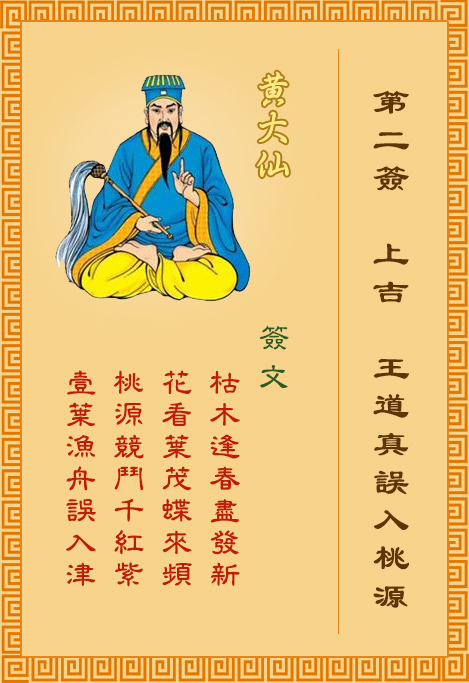 第二簽　上吉　王道真誤入桃源
黃大仙
簽文
枯木逢春盡發新
花看葉茂蝶來頻
桃源競鬥千紅紫
壹葉漁舟誤入津